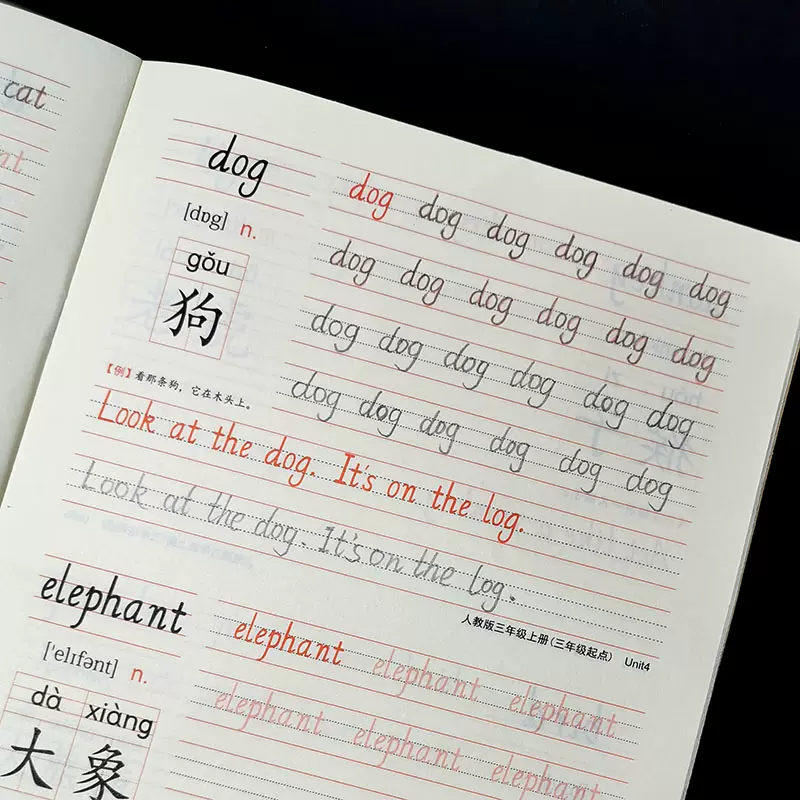 cat
at
dog
dog dog dog dog dog dog
[dɒg] n.
gǒu
狗
dog dog dog dog dog dog
dog dog dog dog dog dog
dog dog dog dog dog dog
【例】看那条狗，它在木头上。
Look at the dog. It's on the log.
Look at the dog. It's on the log.
人教版三年级上册(三年级起点) Unit4
elephant
elephant elephant elephant
['elɪfənt] n.
elephant elephant elephant
dà xiàng
大象